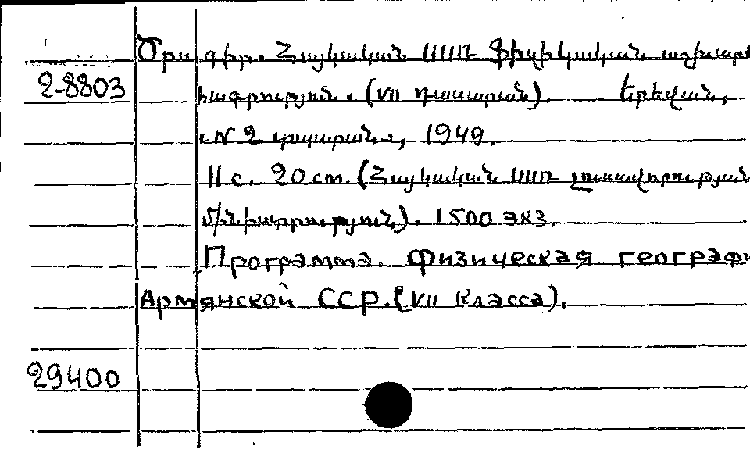 Ծրագիր. Հայկական ՍՍՌ Ֆիզիկական աշխար
2-8803 հագրություն. (VII դասարան). Երևան,
«N 2 տպարան», 1949.
11 с. 20 cm. (Հայկական ՍՍՌ լուսավորության
մինիստրություն). 1500 экз.
Программа. Физическая географи
Армянской ССР. (VII класса).
29400